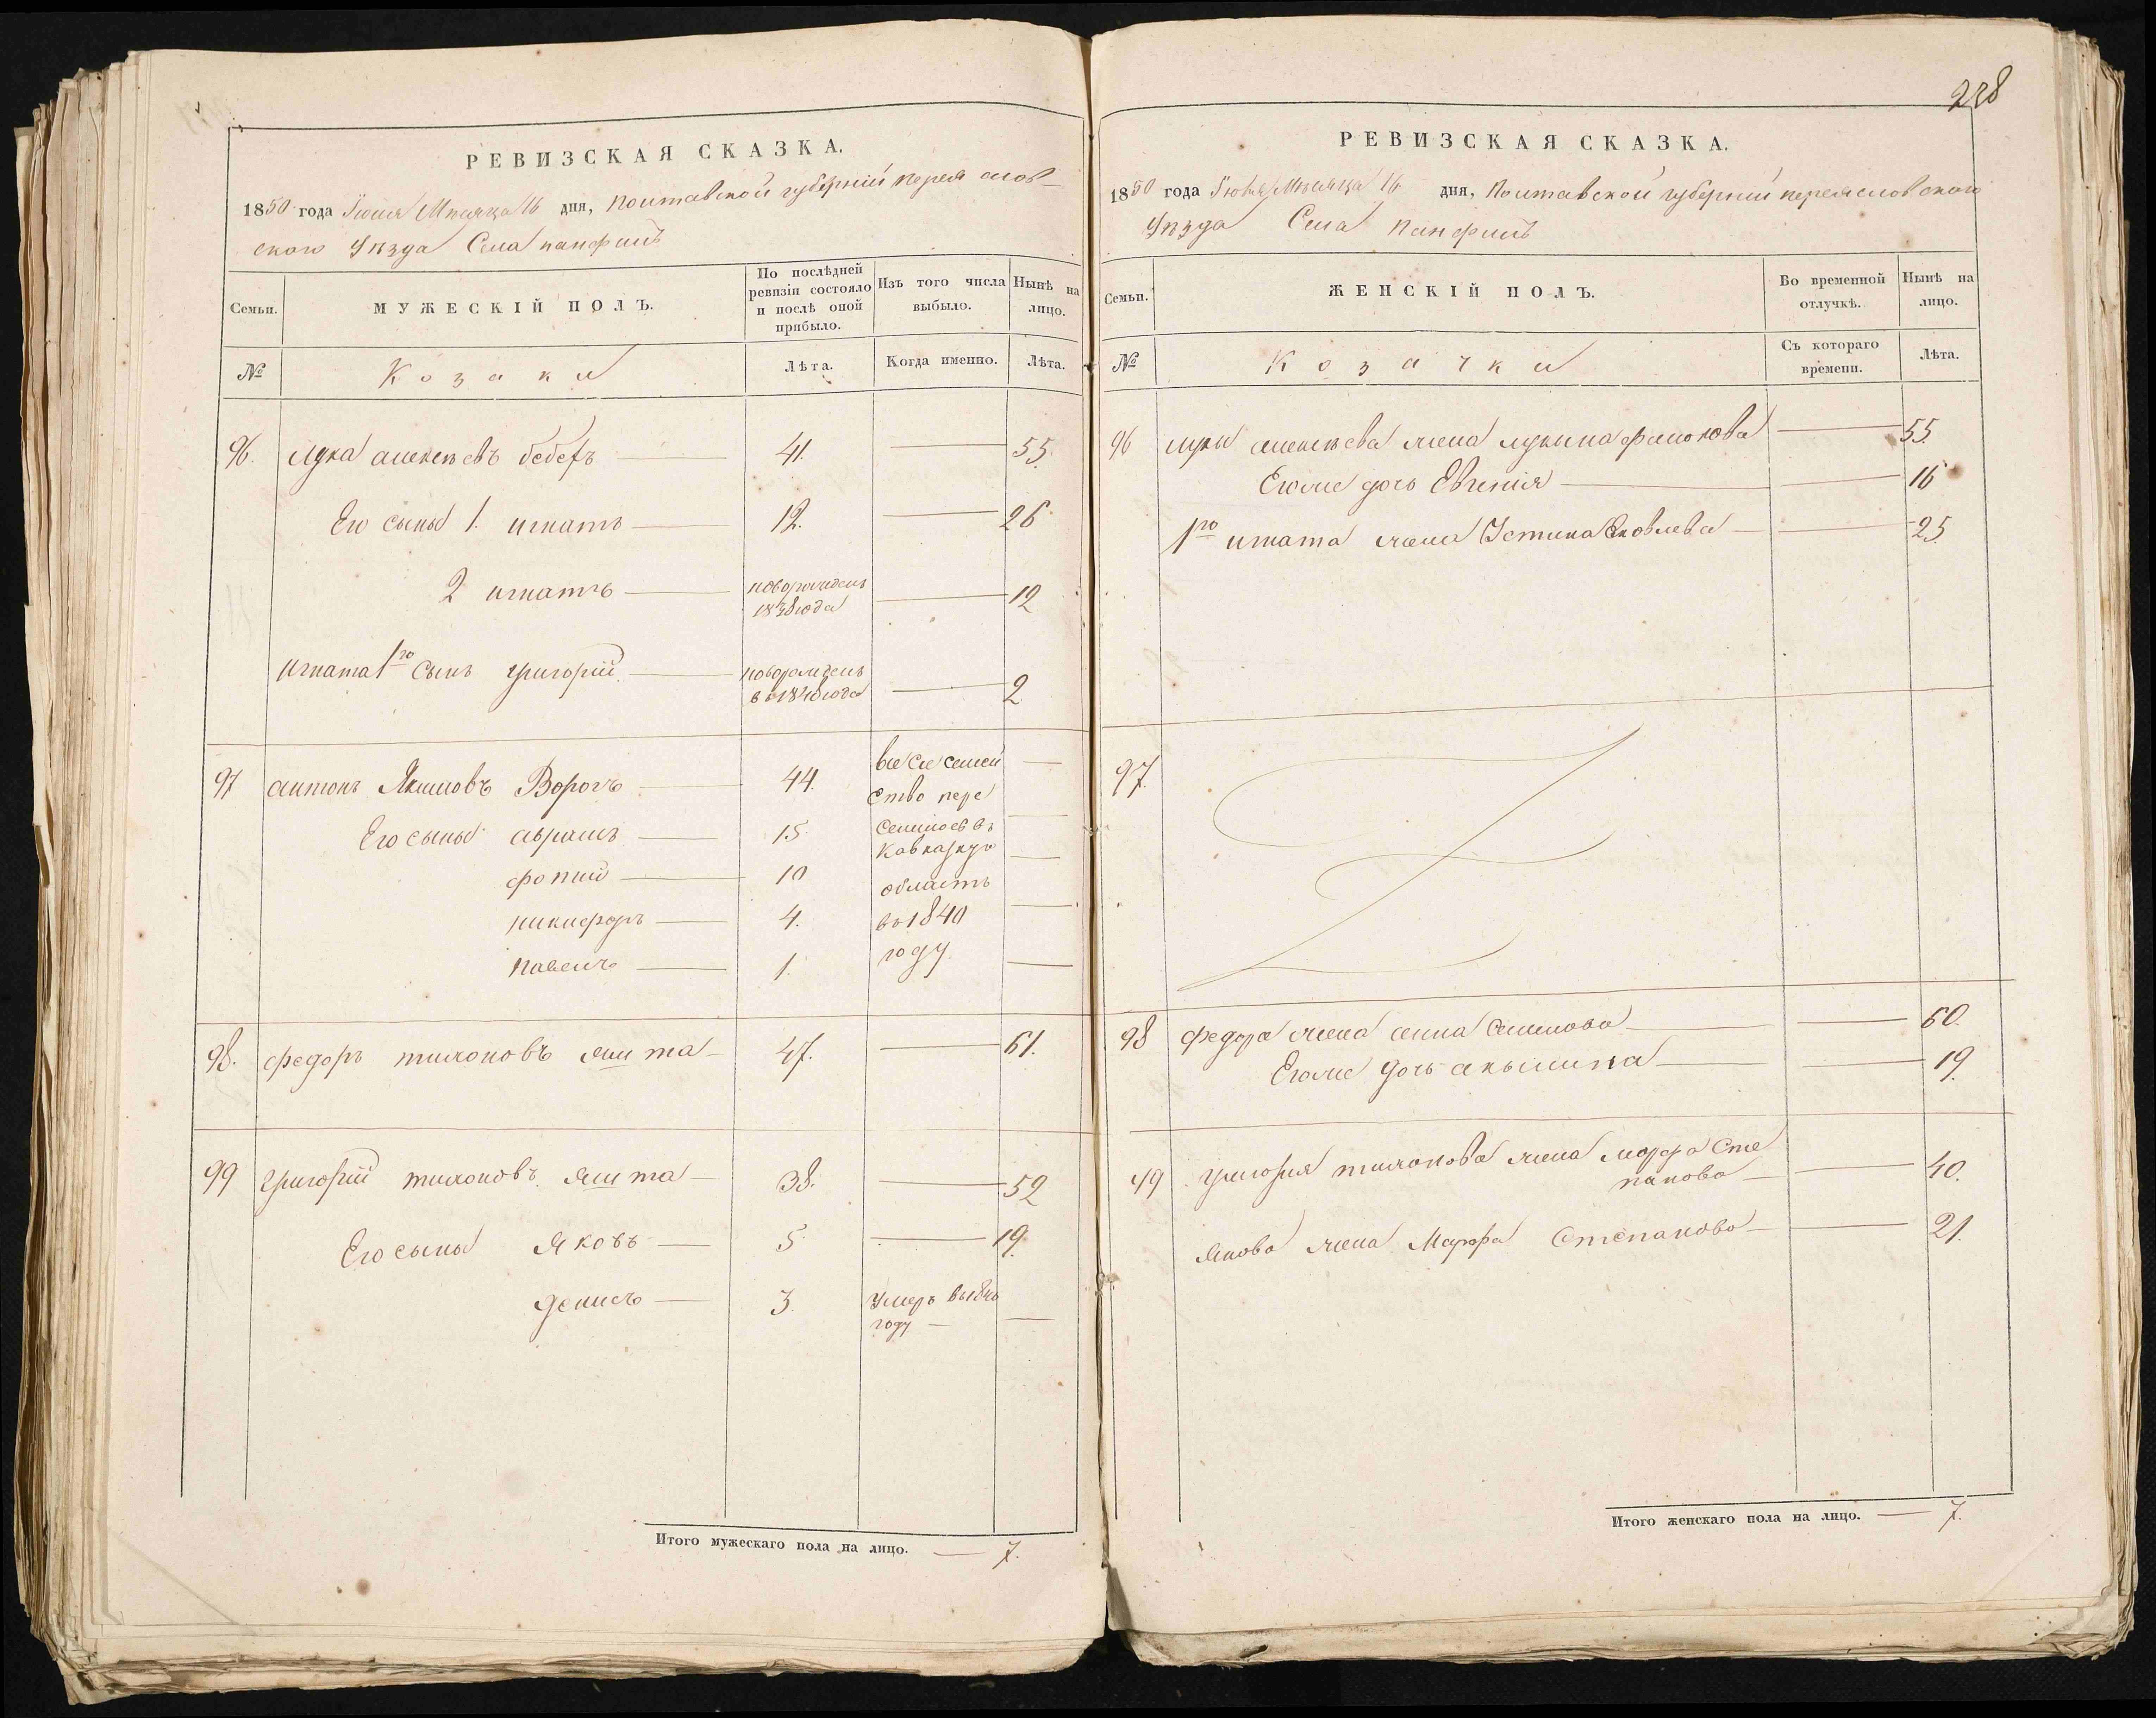 РЕВИЗСКАЯ СКАЗКА.
1850 года Іюня Мѣсяца 16 дня, Полтавской губерніи переяслов-
ского уѣзда Села панфилъ
Семьи.
МУЖЕСКІЙ ПОЛЪ.
По послѣдней ревизіи состояло и послѣ оной прибыло.
Изъ того числа выбыло.
Нынѣ на лицо.
№
Козаки
Лѣта.
Когда именно.
Лѣта.
96. лука алексѣевъ беберъ 41. 55.
Его сыны 1. игнатъ 12. 26
2 игнатъ новорожденъ 1838 года 12
игната 1го сынъ григорій новорожденъ въ 1848 года 2
97 антонъ Якимовъ Ворогъ 44. все сіе семей
ство пере
Его сыны аврамъ 15. селилось въ
Кавказкую
10 область
никифоръ 4. въ 1840
павелъ 1. году.
98. федоръ тихоновъ 47. 61.
99 григорій тихоновъ 38. 52
Его сыны Яковъ 5. 19.
денисъ 3. умеръ въ
году
Итого мужескаго пола на лицо. 7.
228
РЕВИЗСКАЯ СКАЗКА.
1850 года Іюня Мѣсяца 16 дня, Полтавской губерніи переясловского
уѣзда Села панфилъ
Семьи.
ЖЕНСКІЙ ПОЛЪ.
Во временной отлучкѣ.
Нынѣ на лицо.
№
Козачки
Съ котораго времени.
Лѣта.
96 луки алексѣева жена 55.
Егоже дочь Евгенія 16
1го игната жена Устина Яковлева 25.
97.
98 федора жена анна Семенова 60.
Егоже дочь акылина 19.
49 григорія тихонова жена марфа Сте
панова 40.
Якова жена Марфа Степанова 21.
Итого женскаго пола на лицо. 7.